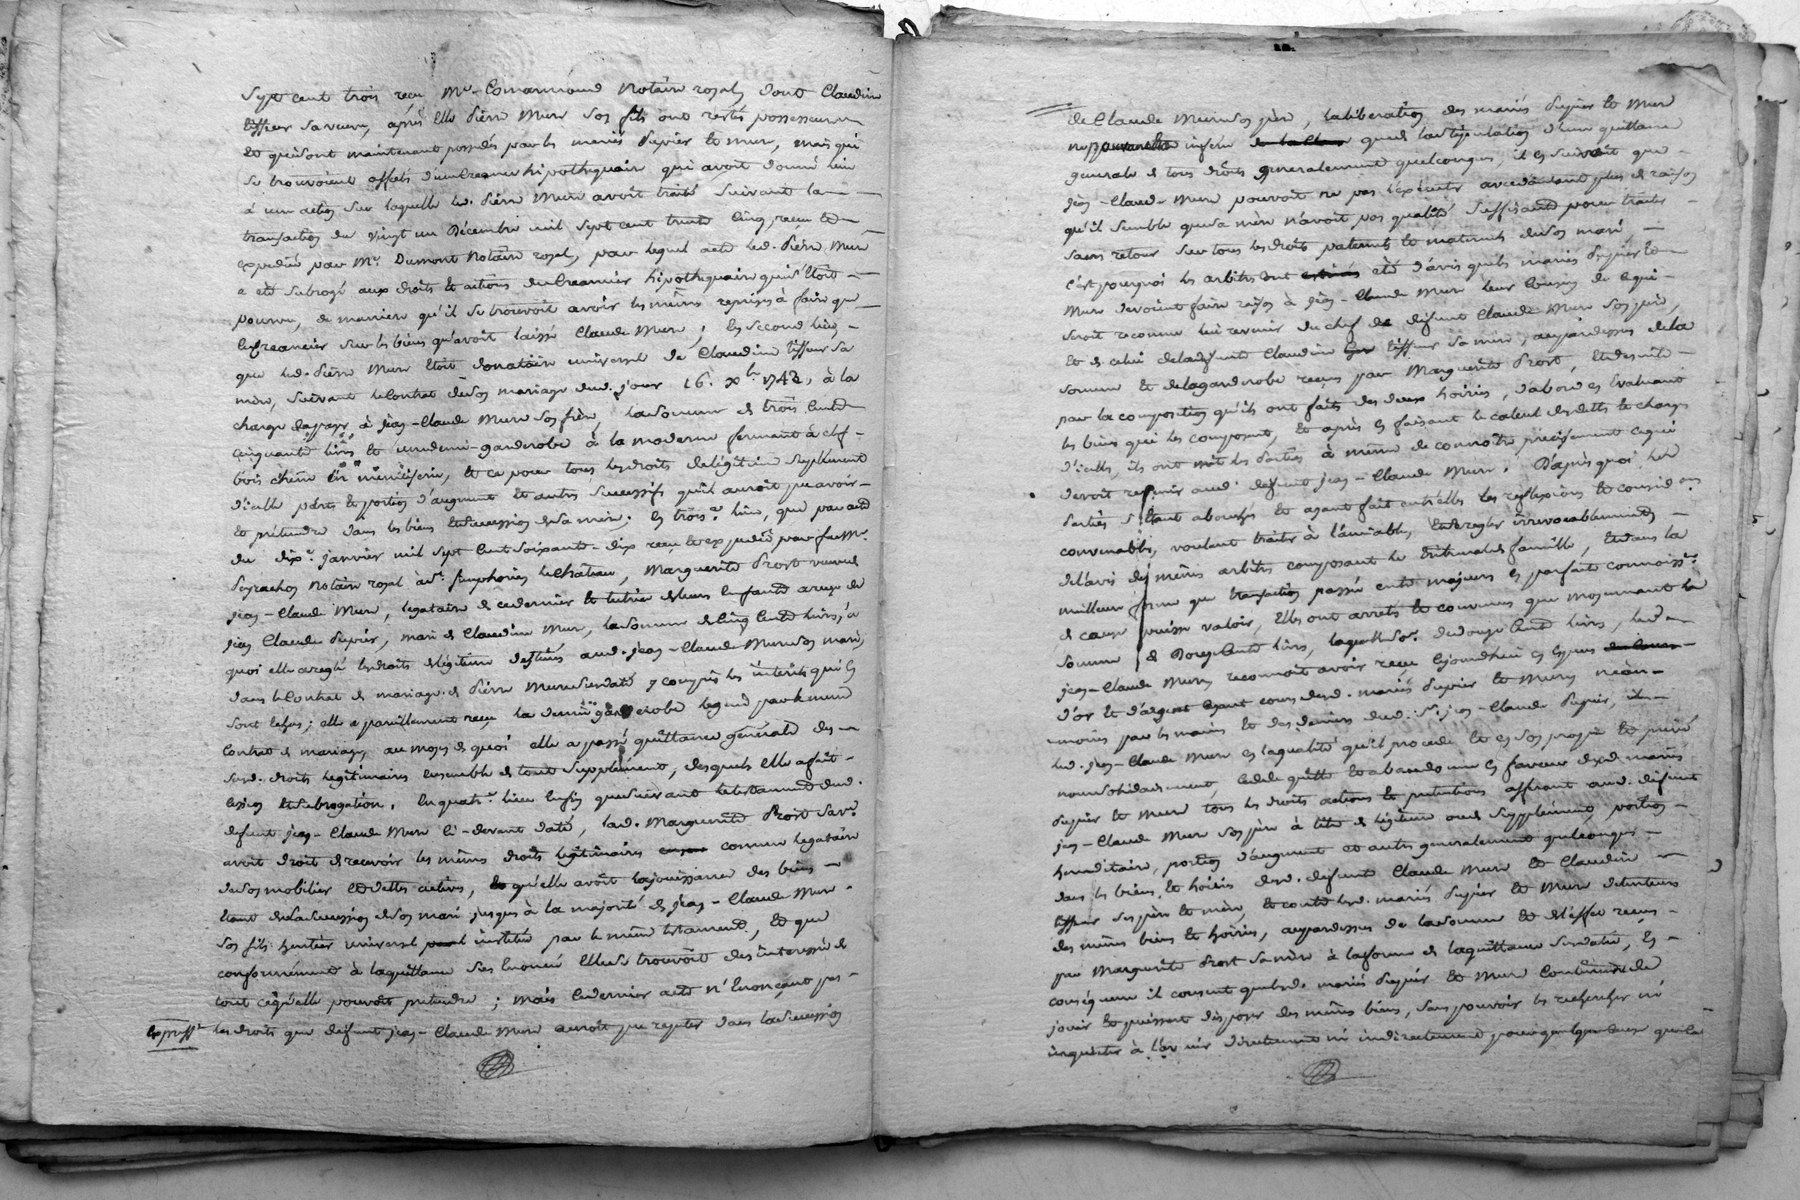 sept cent trois reçu Mr. notaire royal, dont Claudine
tisseur sa veuve, après elle Pierre Mure son fils ont restés possesseurs
et qui sont maintenant possédés par les mariés Dupier et Mure, mais qui
se trouvoient affectés d'un creancier hipothequaire qui avoit donné lieu
à une action sur laquelle led. Pierre Mure avoit traité suivant la
transaction du vingt un Décembre mil sept cent trente cinq, reçue et
expediée par Mr. Dumont notaire royal, par lequel acte led. Pierre Mure
a eté subrogé aux droits et actions du creancier hipothequaire qui s'étoit
pourvu, de maniere qu'il se trouvoit avoir les mêmes reprises à faire que
le creancier sur les biens qu'avoit laissé Claude Mure; en second lieu,
que led. Pierre Mure étoit donataire universel de Claudine tisseur sa
mère, suivant le contrat de son mariage dud. jour 16. Xbre 1742, à la
charge de payer à jean-Claude Mure son frère, la somme de trois cent
cinquante livres et une demi-garderobe à la moderne fermant à clef
bois chêne en menuiserie, et ce pour tous les droits de légitime supplément
d'icelle parts et portion d'augment et autres successifs qu'il auroit pu avoir
et prétendre dans les biens et succession de sa mère; en trois.e lieu, que par acte
du dix.e janvier mil sept cent soixante-dix reçu et expedié par feu Mr.
notaire royal à St. Simphorien le Château, Marguerite Prost veuve de
jean-Claude Mure, legataire de ce dernier et tutrice de leurs enfants a reçu de
jean Claude Dupier, mari de Claudine Mure, la somme de cinq cent livres, à
quoi elle a reglé les droits de légitime destinés aud. jean-Claude Mure son mari,
dans le contrat de mariage de Pierre Mure susdaté y compris les intérêts qui en
sont echus; elle a pareillement reçu la demie garderobe legué par le même
contrat de mariage, au moyen de quoi elle a passé quittance générale des
susd. droits légitimaires ensemble de tout supplément, desquels elle a fait
cession et subrogation. En quatr.e lieu enfin que suivant le testament dud.
defunt jean-Claude Mure ci-devant daté, lad. Marguerite Prost sa ve.
avoit droit de recevoir les mêmes droits légitimaires comme legataire
de son mobilier et dettes actives, et qu'elle avoit la jouissance des biens
étant de la succession de son mari jusques à la majorité de jean-Claude Mure
son fils heritier universel institué par le même testament, et que
conformément à la quittance sus énoncée elle se trouvoit desintéressée de
tout ce qu'elle pouvoit prétendre; mais ce dernier acte n'énonçant pas
les droits que défunt jean-Claude Mure auroit pu repeter dans la succession
de Claude Mure son père, la libération des mariés Dupier et Mure
inférée que de la stipulation d'une quittance
generale de tous droits generalement quelconques, il en suivroit que
jean-Claude Mure pouvoit ne pas l'exécuter avec d'autant plus de raison
qu'il semble que sa mère n'avoit pas qualité suffisante pour traiter
sans retour sur tous les droits paternels et maternels de son mari,
c'est pourquoi les arbitres ont été d'avis que les mariés Dupier et
Mure devoient faire raison à jean-Claude Mure leur cousin de ce qui
seroit reconnu lui revenir du chef de défunt Claude Mure son père,
et de celui de la defunte Claudine tisseur sa mère, au pardessus de la
somme et de la garderobe reçus par Marguerite Prost, et de suite
par la composition qu'ils ont faite des deux hoiries, d'abord en évaluant
les biens qui les composent, et après en faisant le calcul des dettes et charges
d'icelles, ils ont mis les parties à même de connoitre précisement ce qui
devoit revenir aud. défunt jean-Claude Mure. D'après quoi les
parties s'étant abouchés et ayant fait entr'elles les reflexions et considér.ons
convenables, voulant traiter à l'amiable, et de regler irrévocablement
de l'avis des mêmes arbitres composant le tribunal de famille, et dans la
meilleure forme que transaction passée entre majeurs en parfaite connoiss.ce
de cause puisse valoir, elles ont arreté et convenu que moyennant la
somme de douze cent livres, laquelle so.e de douze cent livres, led.
jean-Claude Mure reconnoit avoir reçu cejourd'hui en especes
d'or et d'argent ayant cours desd. mariés Dupier et Mure, néan-
-moins par les mains et des deniers dud. Sr. jean-Claude Dupier,
led. jean-Claude Mure en la qualité qu'il procede et en son propre et privé
nom solidairement, cede quitte et abandonne en faveur desd. mariés
Dupier et Mure tous les droits actions et prétentions afferant aud. défunt
jean-Claude Mure son père à titre de légitime ou de supplément, portion
hereditaire, portion d'augment et autres generalement quelconques
dans les biens et hoiries desd. défunt Claude Mure et Claudine
tisseur ses père et mère, et contre lesd. mariés Dupier et Mure détenteurs
des mêmes biens et hoiries, au pardessus de la somme et de l'effet reçus
par Marguerite Prost sa mère à la forme de la quittance susdatée, en
consequence il consent que lesd. mariés Dupier et Mure continuent de
jouir et puissent disposer des mêmes biens, sans pouvoir les rechercher ni
inquieter à l'avenir directement ni indirectement pour quelque cause que ce